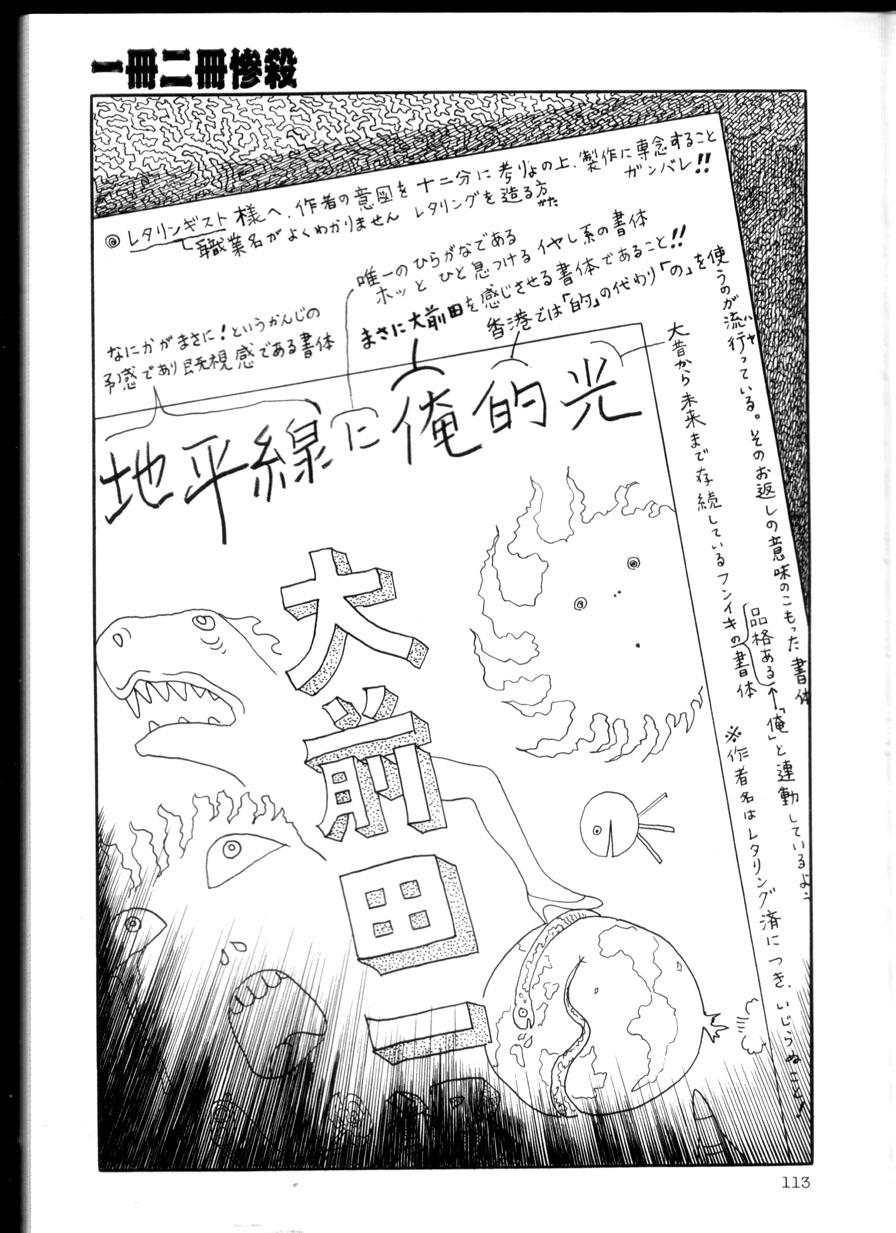 一冊二冊惨殺
◎レタリンギスト様へ、作者の意図を十二分に考りょの上、製作に専念すること
ガンバレ!!
職業名がよくわかりません レタリングを造る方
がた
唯一のひらがなである
ホッとひと息つけるイヤし系の書体
なにかがまさに!というかんじの
予感であり既視感である書体
まさに大前田を感じさせる書体であること!!
香港では「的」の代わり「の」を使うのが流行っている。そのお返しの意味のこもった書体
ハヤ
大昔から未来まで存続しているフンイキの書体
品格ある←「俺」と連動しているよ
※作者名はレタリング済につき、いじらぬこと!
地平線に俺的光
大前田一
113